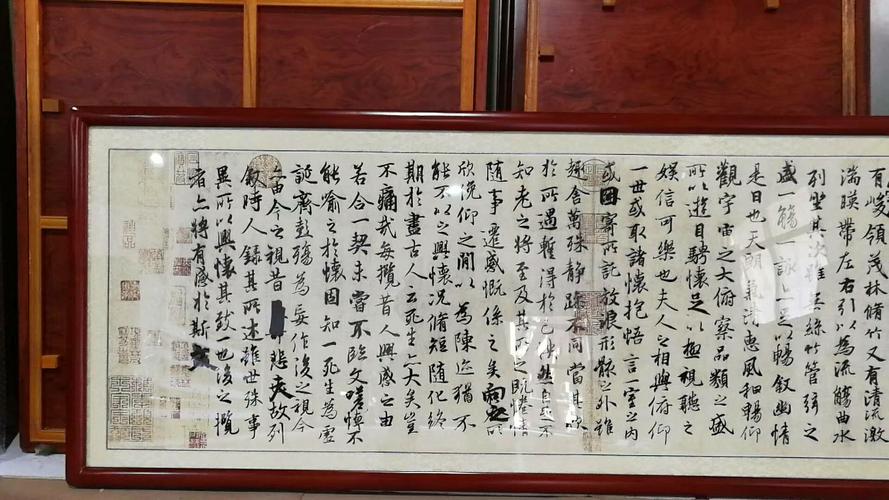 有峻領茂林脩竹又有清流激
湍暎帶左右引以為流觴曲水
列坐其次雖無絲竹管弦之
盛一觴一詠亦足以暢叙幽情
是日也天朗氣清惠風和暢仰
觀宇宙之大俯察品類之盛
所以遊目騁懷足以極視聽之
娛信可樂也夫人之相與俯仰
一世或取諸懷抱悟言一室之內
或因寄所託放浪形骸之外雖
趣舍萬殊靜躁不同當其欣
於所遇暫得於己快然自足不
知老之將至及其所之既惓情
隨事遷感慨係之矣向之所
欣俛仰之間以為陳迹猶不
能不以之興懷況脩短隨化終
期於盡古人云死生亦大矣豈
不痛哉每攬昔人興感之由
若合一契未嘗不臨文嗟悼不
能喻之於懷固知一死生為虛
誕齊彭殤為妄作後之視今
亦由今之視昔悲夫故列
叙時人錄其所述雖世殊事
異所以興懷其致一也後之攬
者亦將有感於斯文